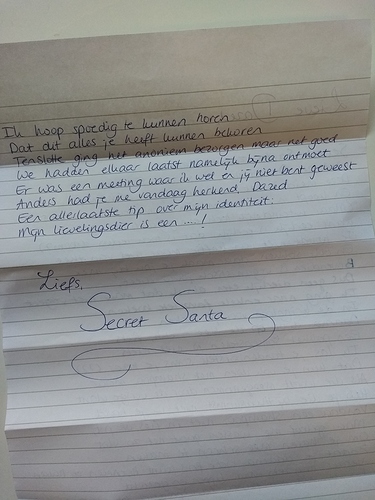 Ik hoop spoedig te kunnen horen
Dat dit alles je heeft kunnen bekoren
Tenslotte ging het anoniem bezorgen maar net goed
We hadden elkaar laatst namelijk bijna ontmoet
Er was een meeting waar ik wel en jij niet bent geweest
Anders had je me vandaag herkend, Dazed
Een allerlaatste tip over mijn identiteit:
Mijn lievelingsdier is een ...!
Liefs,
Secret Santa